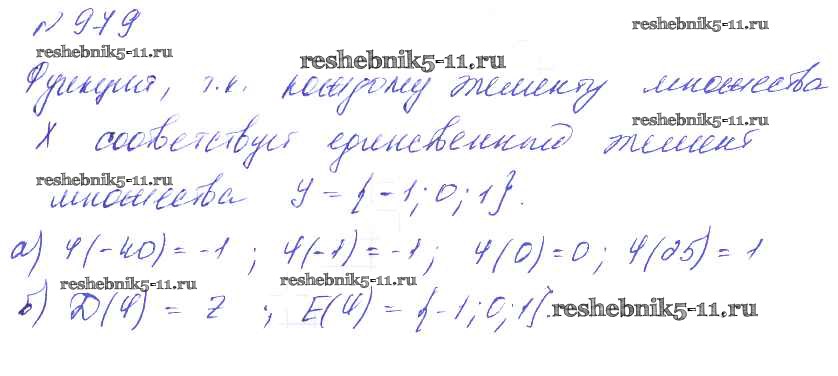 № 979
reshebnik5-11.ru
reshebnik5-11.ru
reshebnik5-11.ru
Функция, т.к. каждому элементу множества
reshebnik5-11.ru
X соответствует единсвенный элемент
reshebnik5-11.ru
множества y = {-1; 0; 1}.
а) φ(-40) = -1 ; φ(-1) = -1; φ(0) = 0; φ(25) = 1
reshebnik5-11.ru
reshebnik5-11.ru
б) D(φ) = Z ; E(φ) = {-1; 0; 1}.
reshebnik5-11.ru